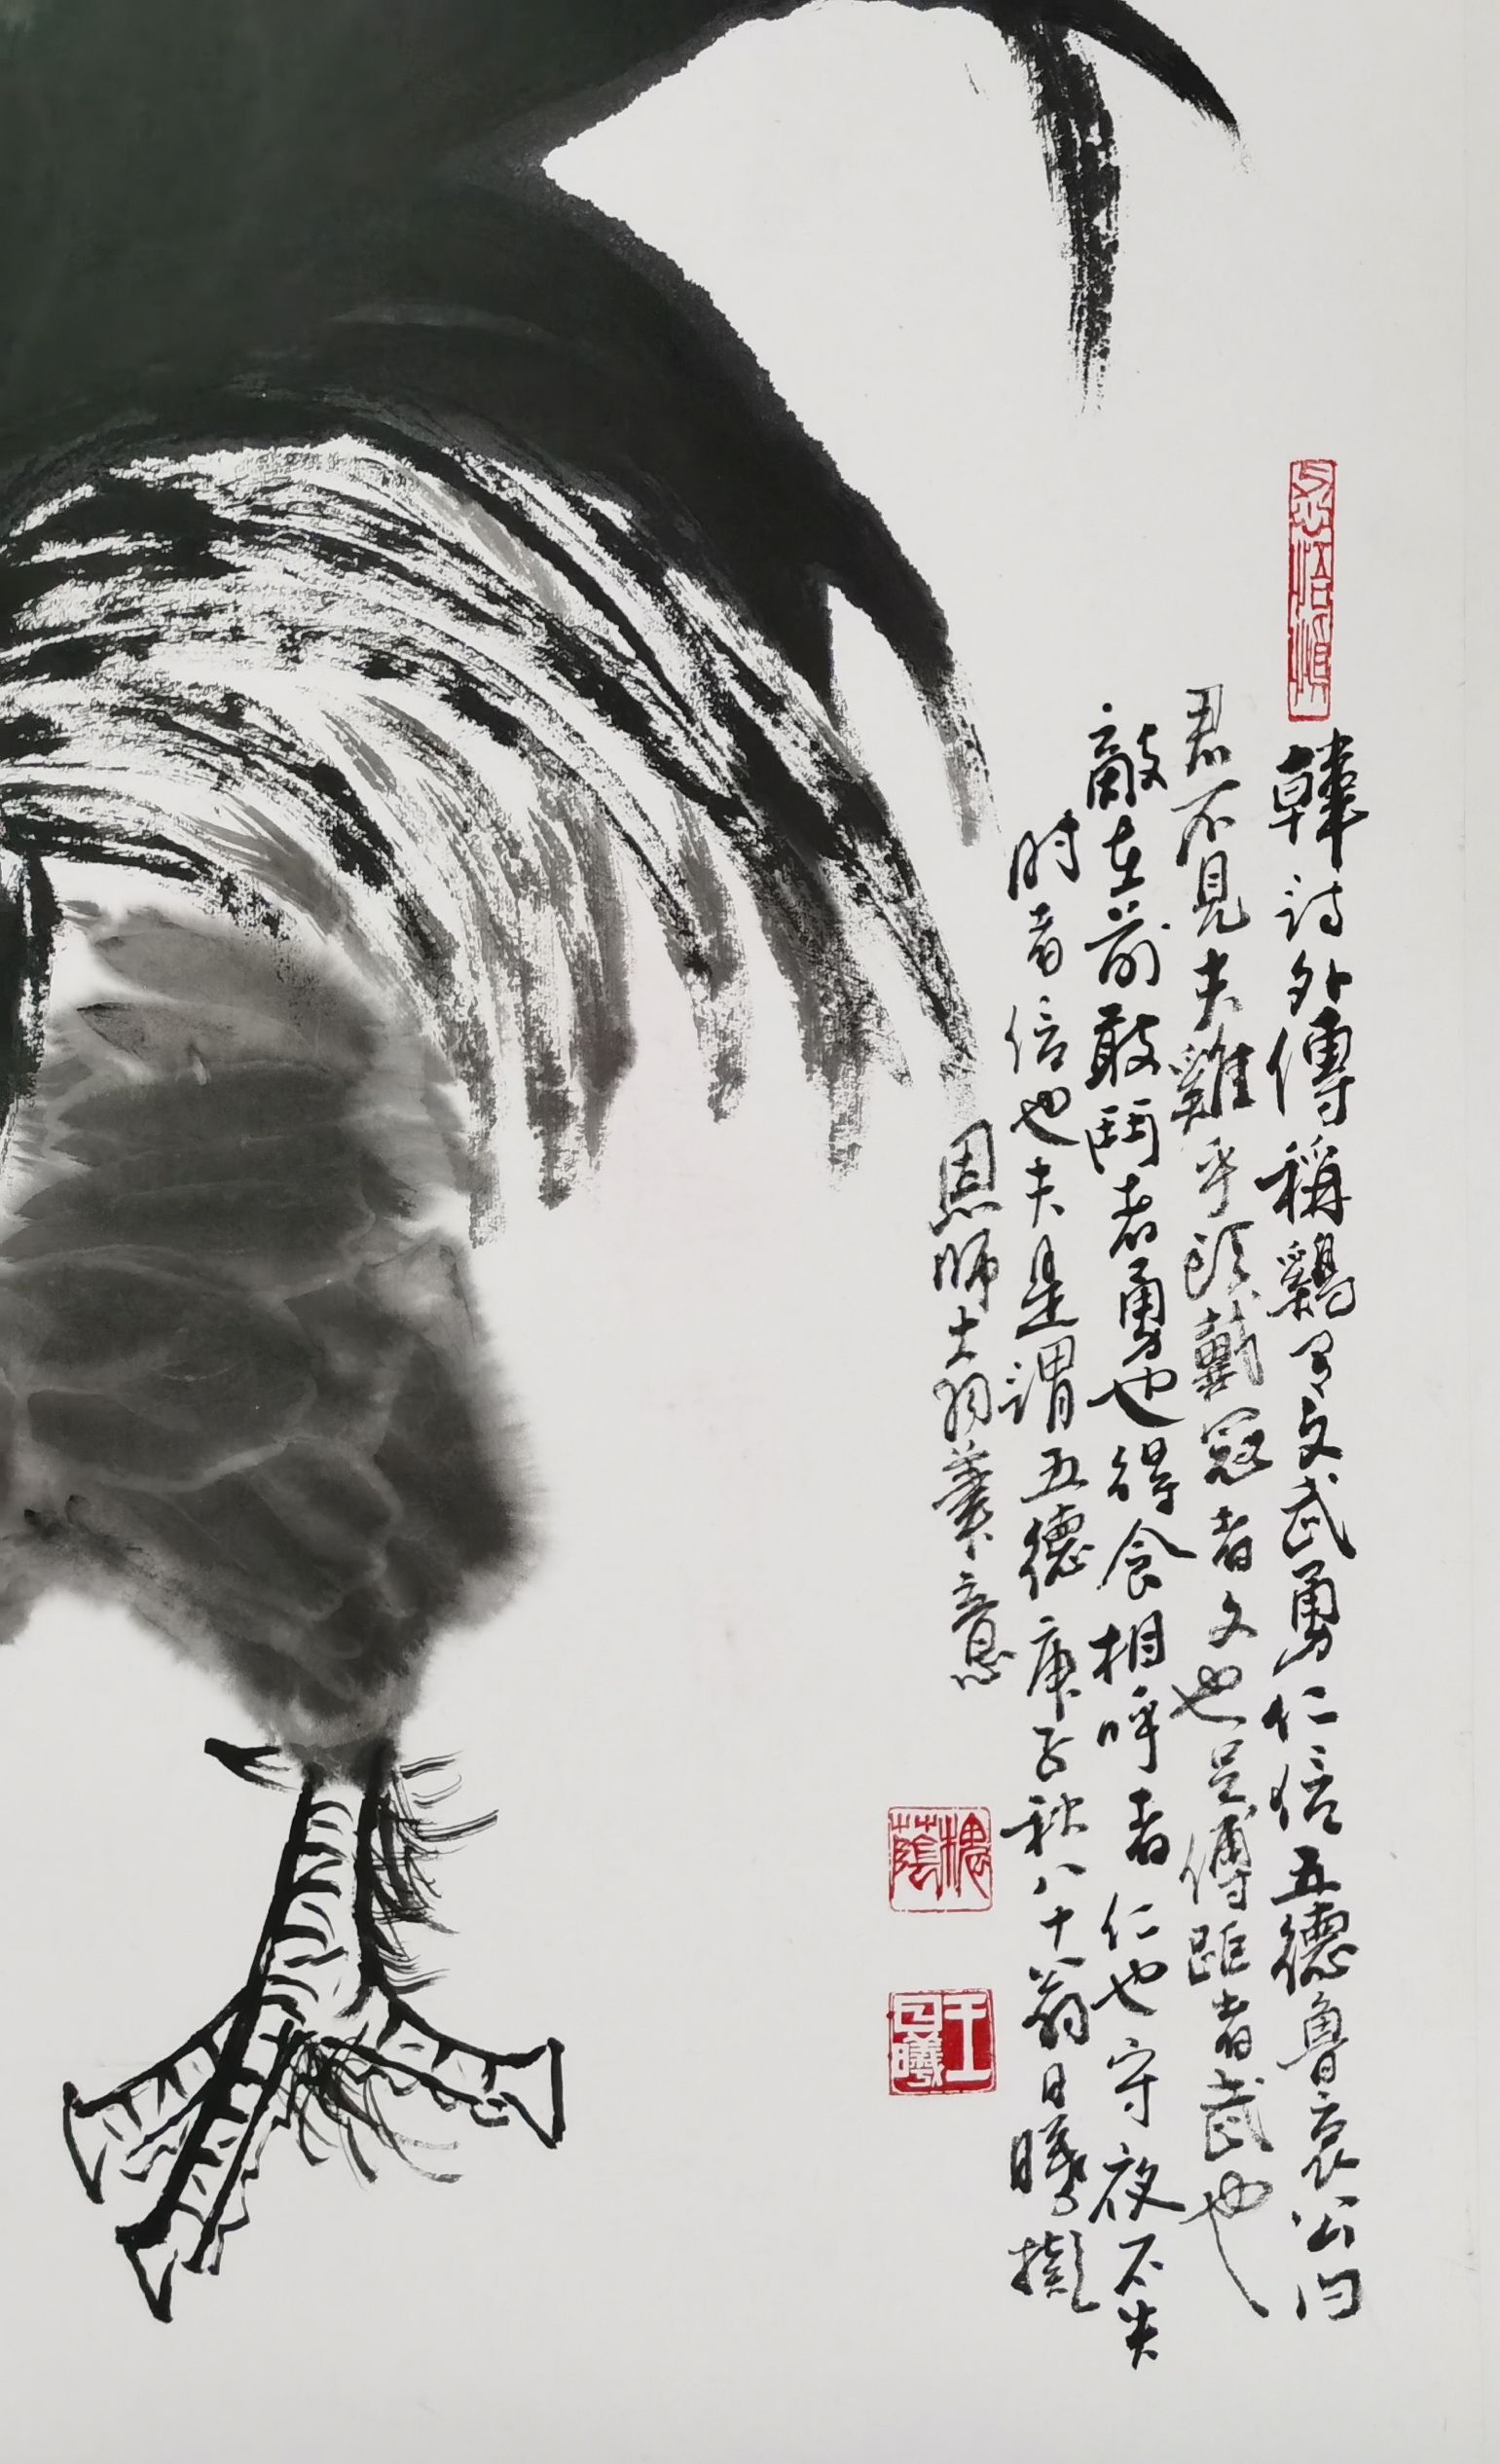 韓詩外傳稱鷄有文武勇仁信五德魯哀公問
君不見夫雞乎頭戴冠者文也足傅距者武也
敵在前敢鬥者勇也得食相呼者仁也守夜不失
时者信也夫是謂五德庚子秋八十翁日曦擬
恩師大羽筆意
槐蔭
王日曦